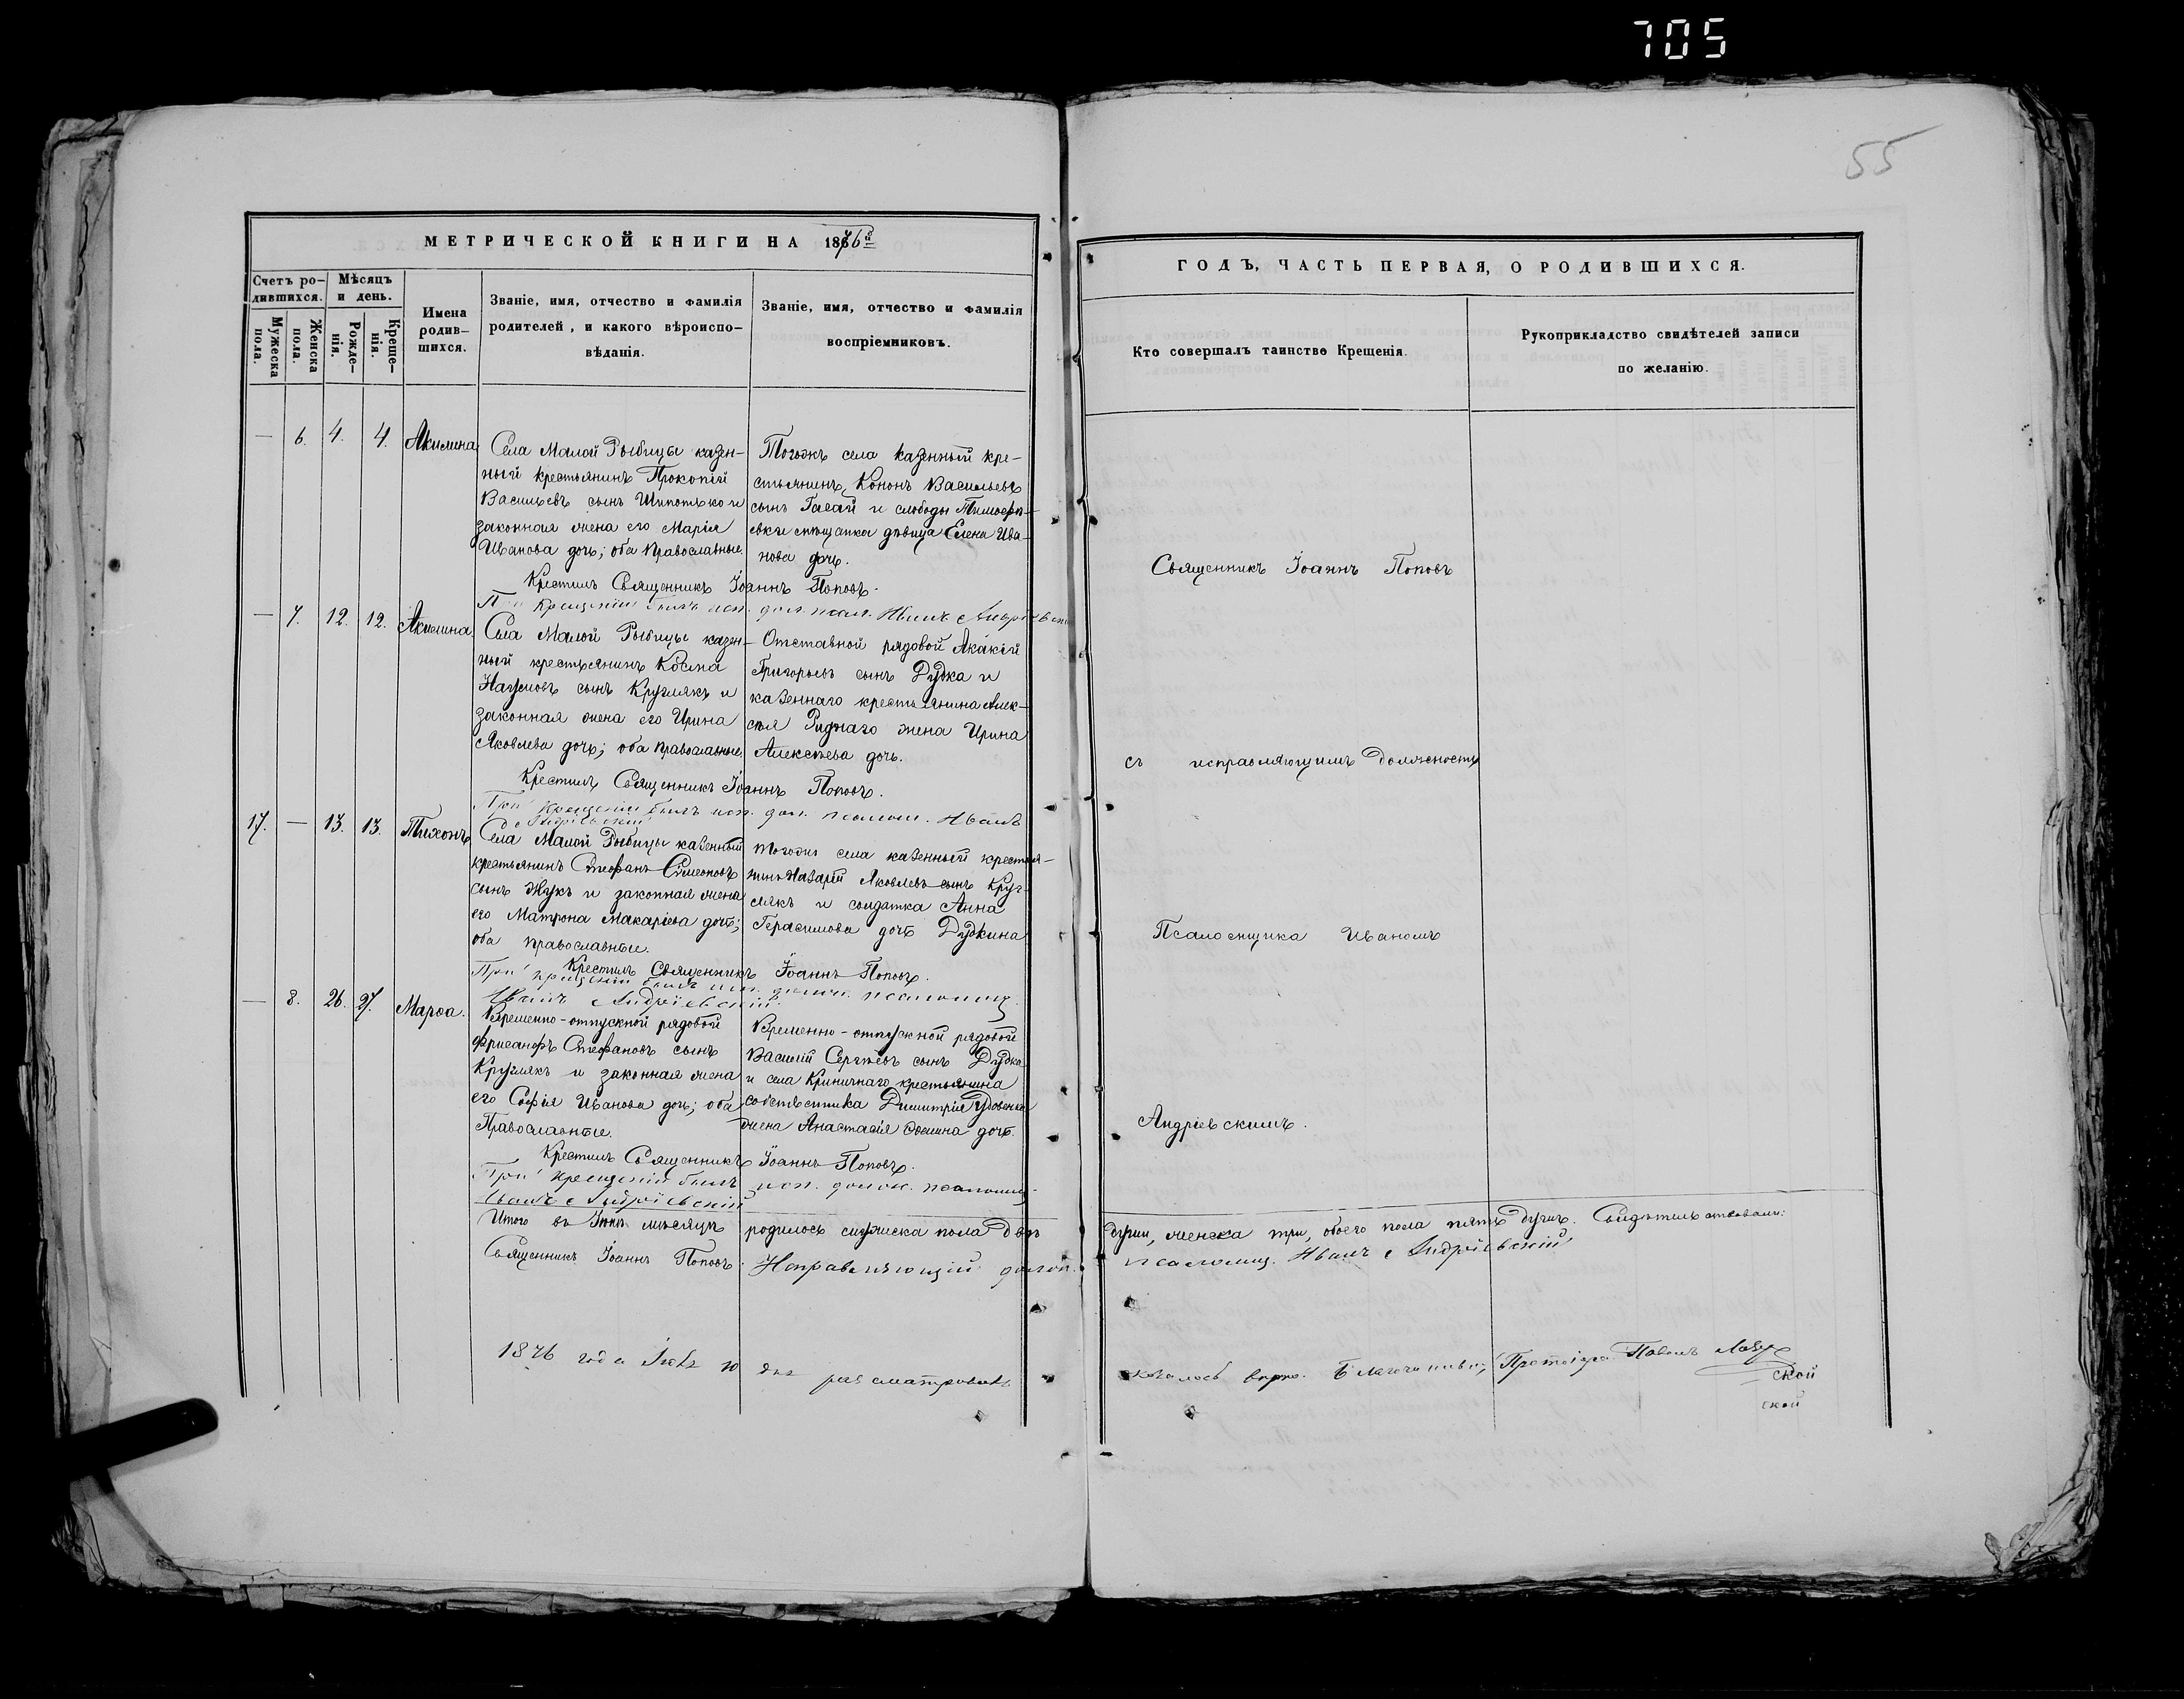 705
55
МЕТРИЧЕСКОЙ КНИГИ НА 1876 г
Счетъ ро-
дившихся.
Мѣсяцъ
и день.
Мужеска
пола.
Женска
пола.
Рожде-
нія.
Креще-
нія.
Имена
родив-
шихся.
Званіе, имя, отчество и фамилія
родителей, и какого вѣроиспо-
вѣданія.
Званіе, имя, отчество и фамилія
воспріемниковъ.
— 6. 4. 4. Акилина
Села Малой Рыбицы казен-
ный крестьянинъ Прокопій
Васильевъ сынъ Шипотько и
законная жена его Марія
Иванова дочь; оба Православные.
Тогожъ села казенный кре-
стьянинъ Кононъ Васильевъ
сынъ Гасай и слободы Тимофѣ-
евки мѣщанка дѣвица Елена Ива-
нова дочь.
Крестилъ Священникъ Іоаннъ Поповъ.
При крещеніи былъ исп. дол. псал. Иванъ Андріевскій
— 7. 12. 12. Акилина
Села Малой Рыбицы казен-
ный крестьянинъ Косма
Наумовъ сынъ Круглякъ и
законная жена его Ирина
Яковлева дочь; оба православные.
Отставной рядовой Акакій
Григорьевъ сынъ Дудка и
казеннаго крестьянина Алек-
сѣя Риднаго жена Ирина
Алексѣева дочь.
Крестилъ Священникъ Іоаннъ Поповъ.
При крещеніи былъ исп. дол. псалом. Иванъ
Андріевскій
17. — 13. 13. Тихонъ
Села Малой Рыбицы казенный
крестьянинъ Стефанъ Симеоновъ
сынъ Жукъ и законная жена
его Матрона Макаріева дочь;
оба православные.
Тогожъ села казенный крестья-
нинъ Назарій Яковлевъ сынъ Круг-
лякъ и солдатка Анна
Герасимова дочь Дудкина
Крестилъ Священникъ Іоаннъ Поповъ.
При крещеніи былъ исп. должн. псаломщ.
Иванъ Андріевскій
— 8. 26. 27. Марѳа.
Временно-отпускной рядовой
Стефановъ сынъ
Круглякъ и законная жена
его Софія Иванова дочь; оба
Православные.
Временно-отпускной рядовой
Василій Сергѣевъ сынъ Дудка
и села Криничнаго крестьянина
собственника Димитрія Удовенка
жена Анастасія Ѳомина дочь.
Крестилъ Священникъ Іоаннъ Поповъ.
При крещеніи былъ исп. должн. псаломщ.
Иванъ Андріевскій
Итого въ Іюнѣ мѣсяцѣ родилось мужеска пола двѣ
Священникъ Іоаннъ Поповъ. Исправляющій должн.
1876 года Іюля 10 дня разсматровано
ГОДЪ, ЧАСТЬ ПЕРВАЯ, О РОДИВШИХСЯ.
Кто совершалъ таинство Крещенія.
Рукоприкладство свидѣтелей записи
по желанію.
Священникъ Іоаннъ Поповъ
съ исправляющимъ должность
Псаломщика Иваномъ
Андріевскимъ.
души, женска три, обоего пола пять душъ. Свидѣтельствовали:
псаломщ. Иванъ Андріевскій
оказалось вѣрно. Благочинный, Протоіерей Павелъ
ской
ской